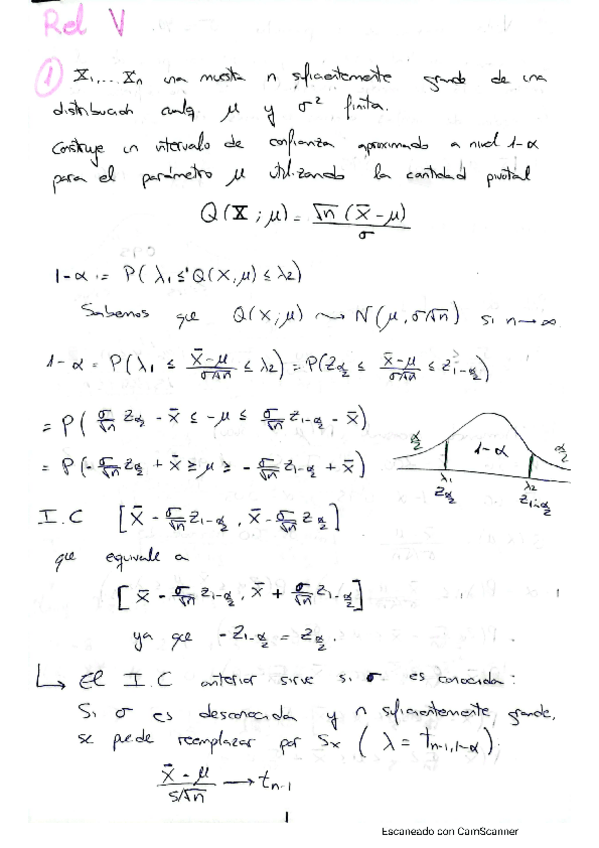 Rel V
① X₁,... Xn una muestra n suficientemente grande de una
distribución cualq. μ y σ² finita.
Construye un intervalo de confianza aproximado a nivel 1-α
para el parámetro μ utilizando la cantidad pivotal
Q(X; μ) = √n (X̄-μ) / σ
1-α := P(λ₁ ≤ Q(X, μ) ≤ λ₂)
Sabemos que Q(X; μ) ⇝ N(μ, σ/√n) si n→∞
1-α = P(λ₁ ≤ (X̄-μ)/(σ/√n) ≤ λ₂) = P(Zα/2 ≤ (X̄-μ)/(σ/√n) ≤ Z1-α/2)
= P(σ/√n Zα/2 - X̄ ≤ -μ ≤ σ/√n Z1-α/2 - X̄)
= P(-σ/√n Zα/2 + X̄ ≥ μ ≥ -σ/√n Z1-α/2 + X̄)
α/2 1-α α/2
λ₁ λ₂
Zα/2 Z1-α/2
I.C [X̄ - σ/√n Z1-α/2, X̄ - σ/√n Zα/2]
que equivale a
[X̄ - σ/√n Z1-α/2, X̄ + σ/√n Z1-α/2]
ya que -Z1-α/2 = Zα/2.
↳ El I.C anterior sirve si σ es conocida:
Si σ es desconocida y n suficientemente grande,
se puede reemplazar por Sx (λ = tn-1,1-α).
(X̄ - μ)/(S/√n) → tn-1
1
Escaneado con CamScanner